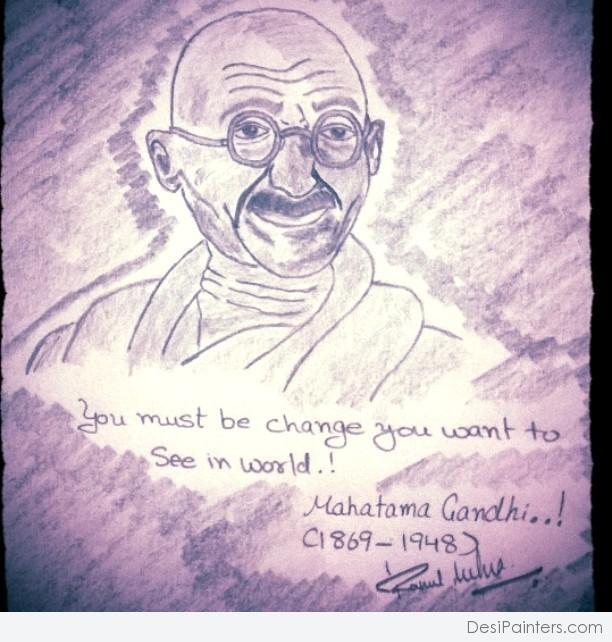 You must be change you want to
See in world.!
Mahatama Gandhi..!
(1869-1948)
DesiPainters.com